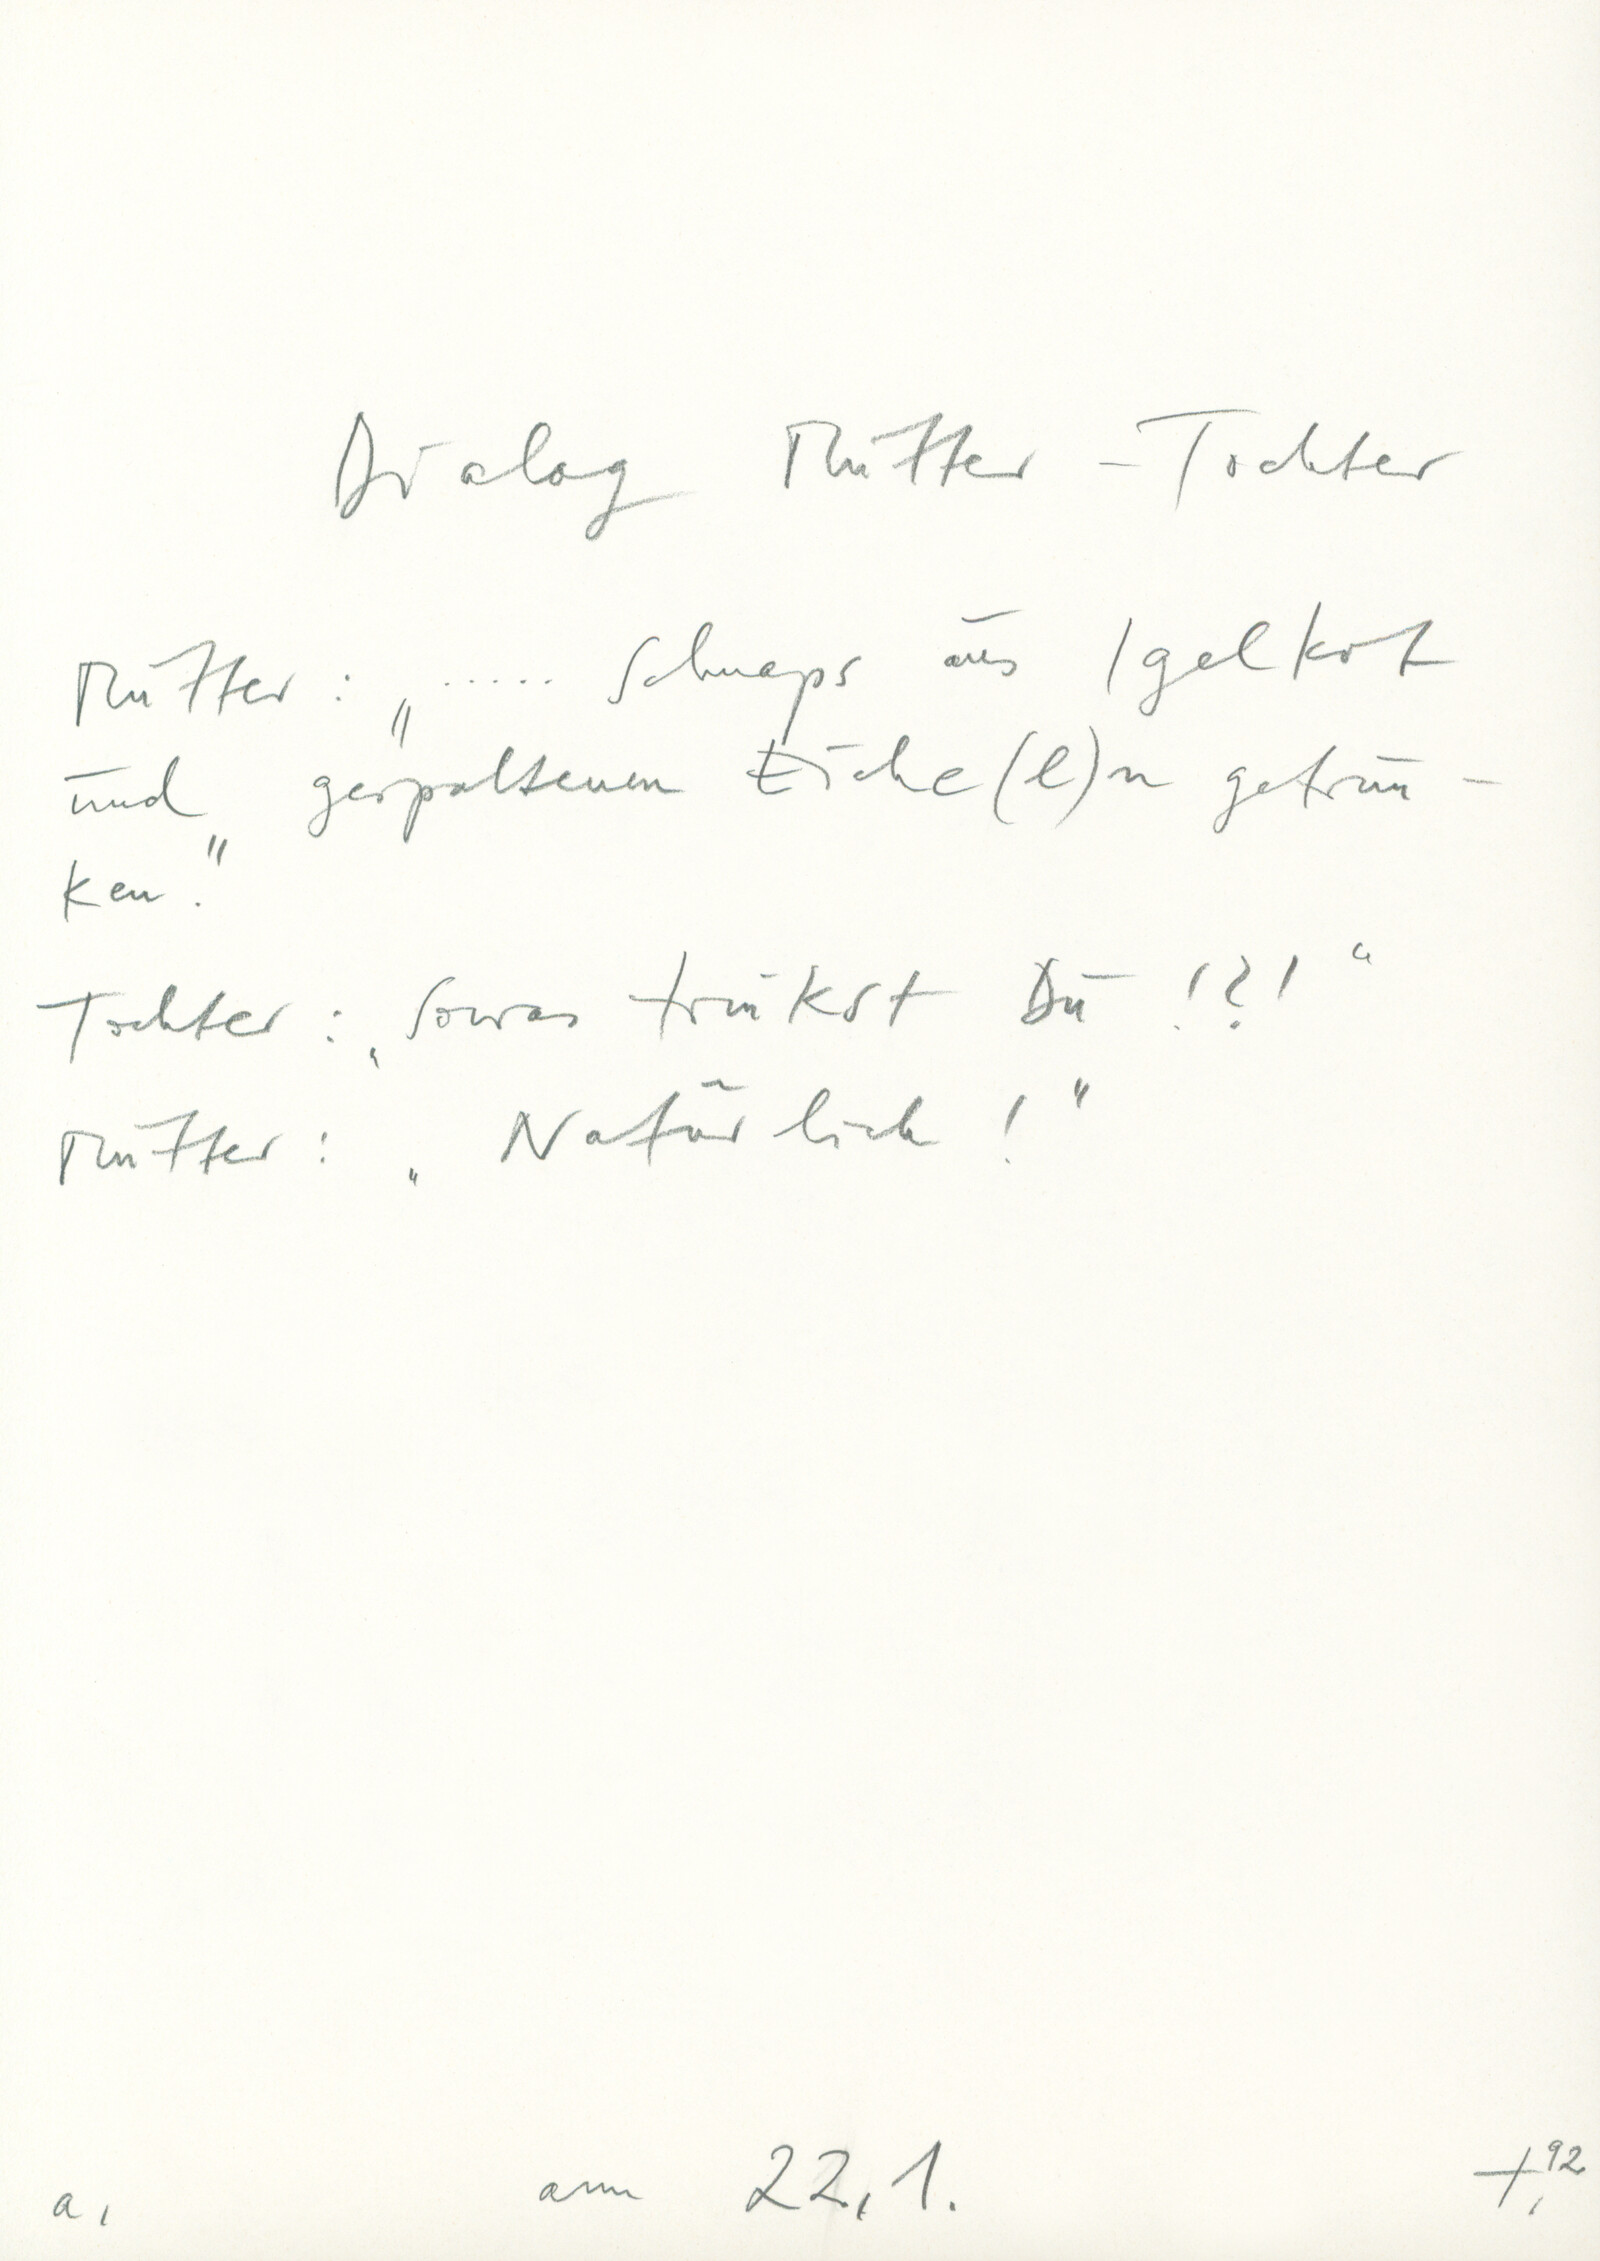 Dialog Mutter – Tochter
Mutter : „..... Schnaps aus Igelkot
und gespaltenen Eiche(l)n getrun-
ken."
Tochter : „Sowas trinkst Du !?!"
Mutter : „Natürlich !"
a, am 22.1. t, 92